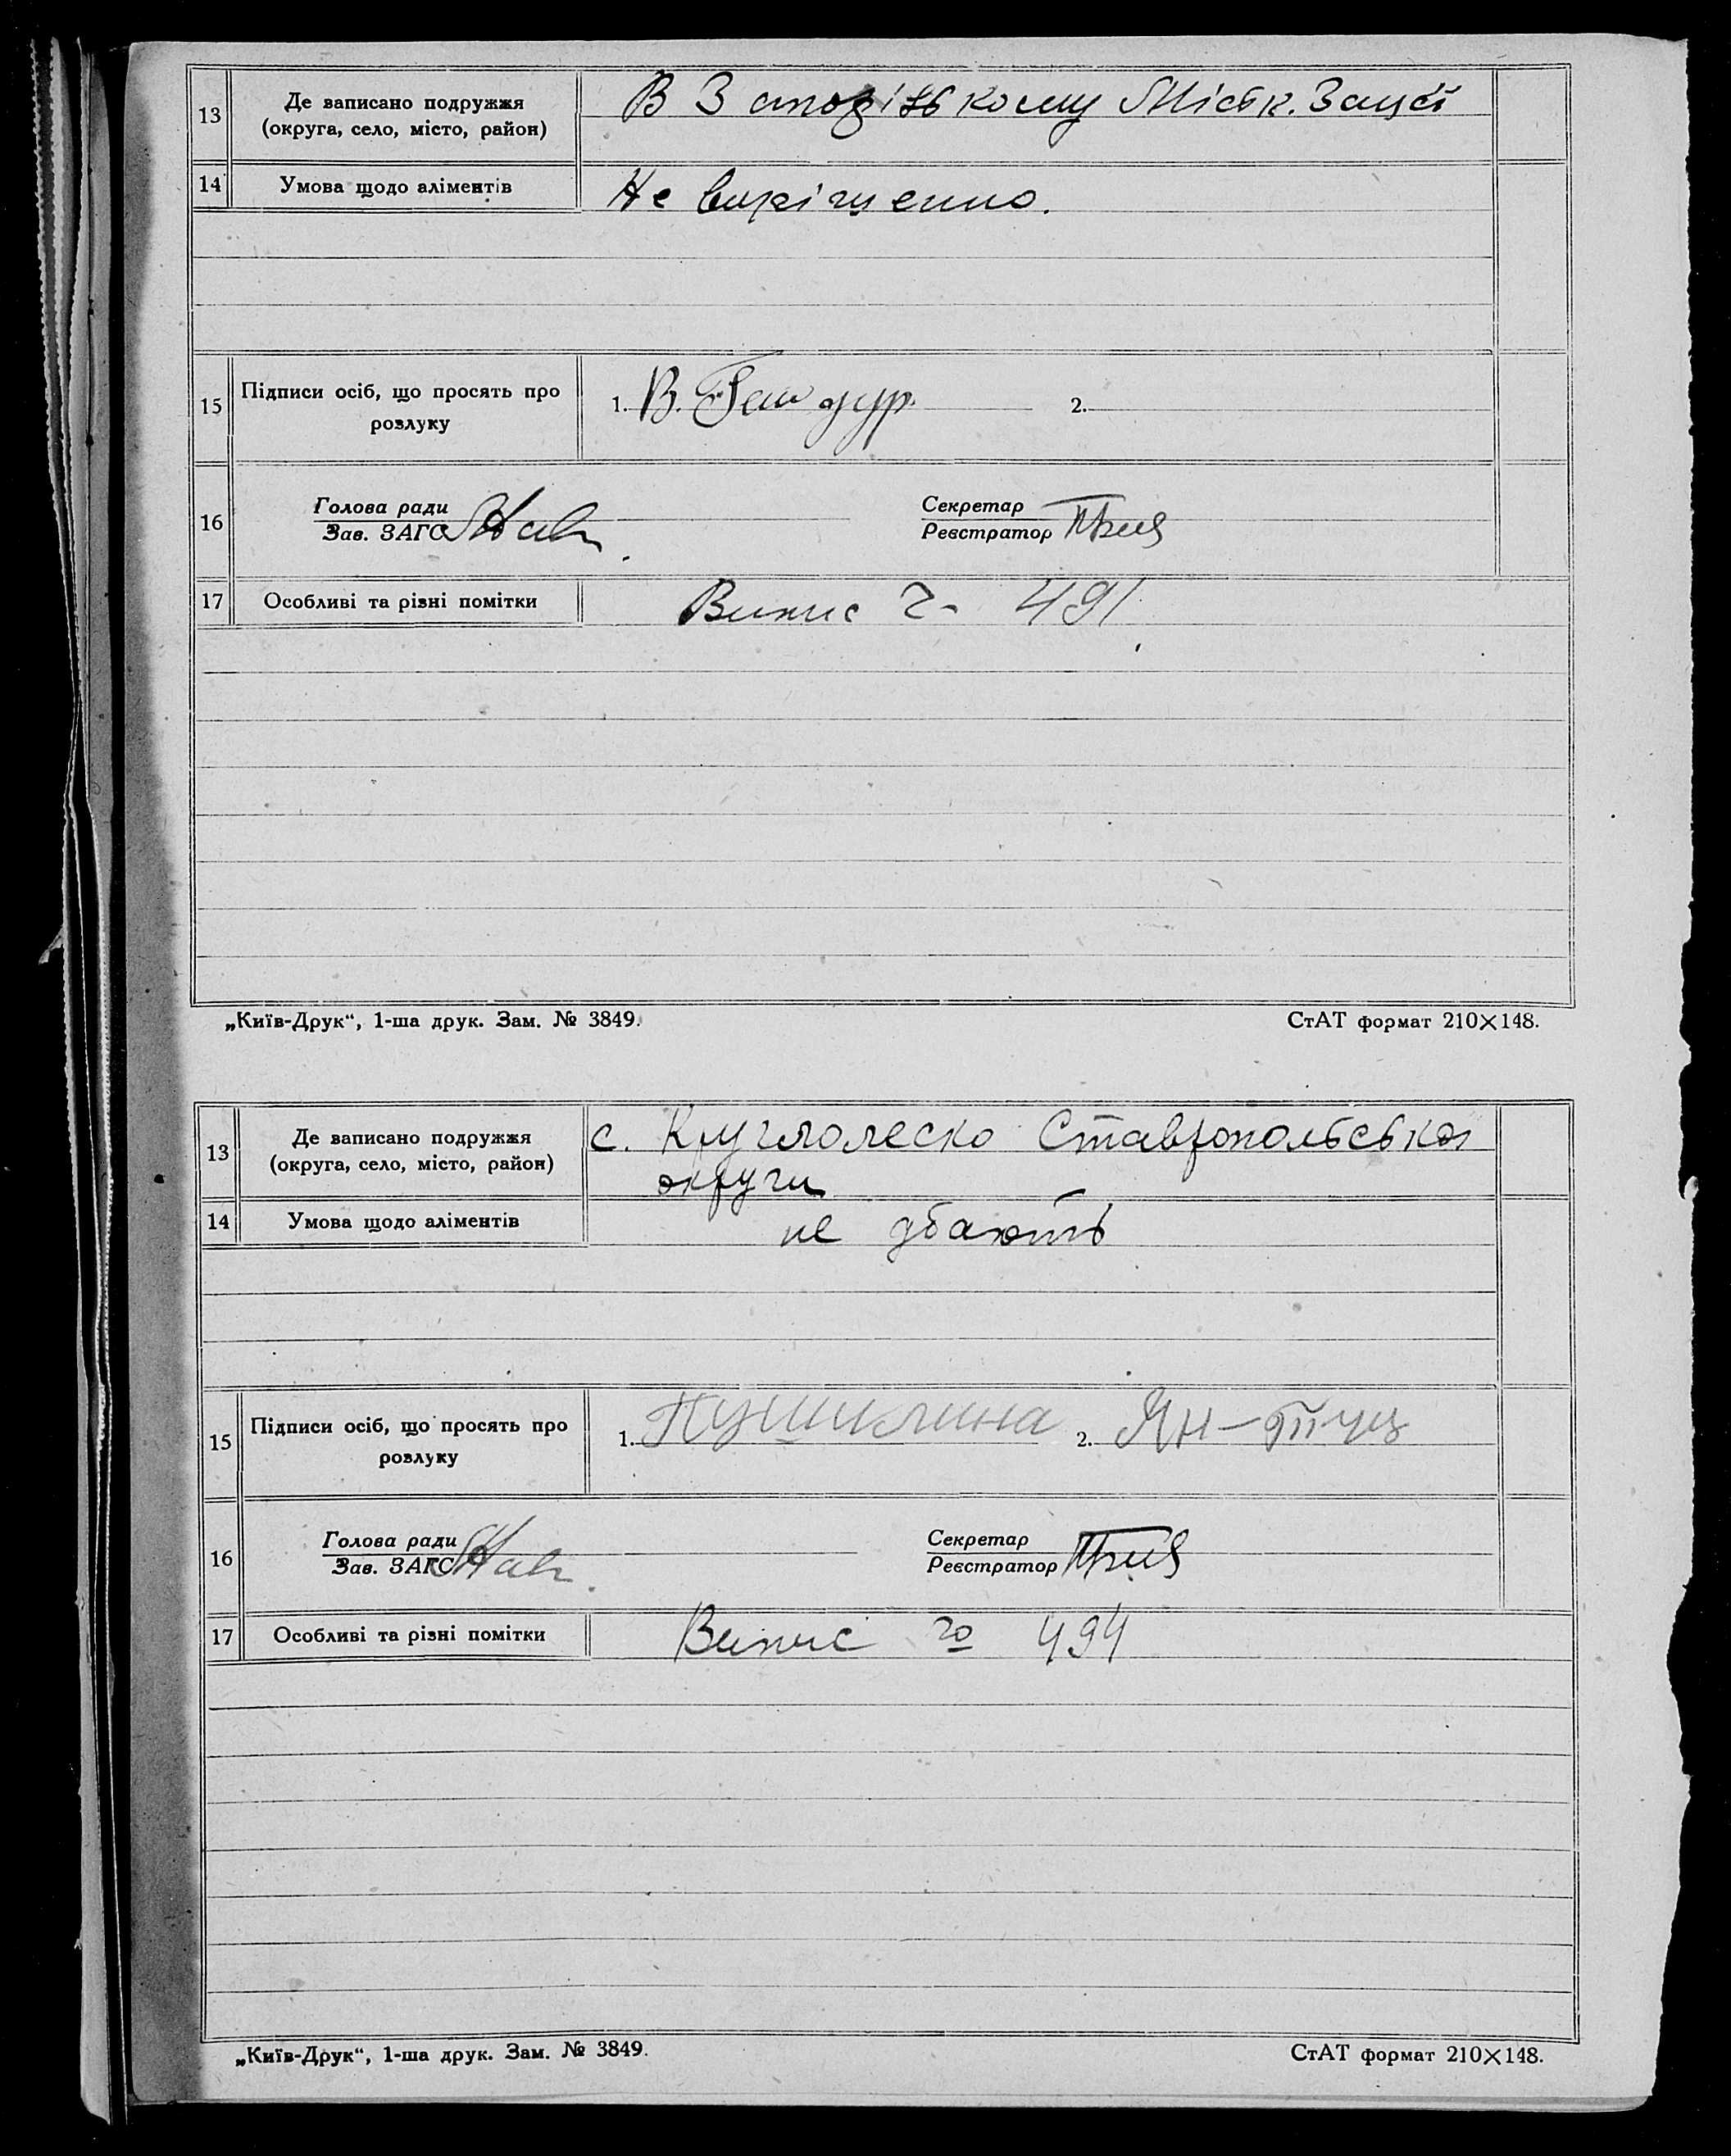 13
Де записано подружжя
(округа, село, місто, район)
В Запорізькому Міськ. Загсі
14
Умова щодо аліментів
Не вирішенно.
15
Підписи осіб, що просять про
розлуку
1. В.
2.
16
Голова ради
Зав. ЗАГС
Секретар
Реєстратор
17
Особливі та різні помітки
Випис Ч- 491
„Київ-Друк“, 1-ша друк. Зам. № 3849.
СтАТ формат 210×148.
13
Де записано подружжя
(округа, село, місто, район)
с. Круглолеско Ставропольської
округи
14
Умова щодо аліментів
не дбають
15
Підписи осіб, що просять про
розлуку
1. Пушилина
2. Ян-
16
Голова ради
Зав. ЗАГС
Секретар
Реєстратор
17
Особливі та різні помітки
Випис 494
„Київ-Друк“, 1-ша друк. Зам. № 3849.
СтАТ формат 210×148.